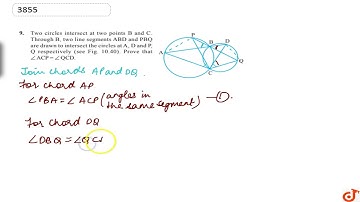 3855
9. Two circles intersect at two points B and C.
Through B, two line segments ABD and PBQ
are drawn to intersect the circles at A, D and P,
Q respectively (see Fig. 10.40). Prove that
∠ACP = ∠QCD.
P
D
B
A
Q
C
Join chords AP and DQ.
For chord AP
∠PBA = ∠ACP (angles in
the same segment) → ①.
For chord DQ
∠DBQ = ∠QC